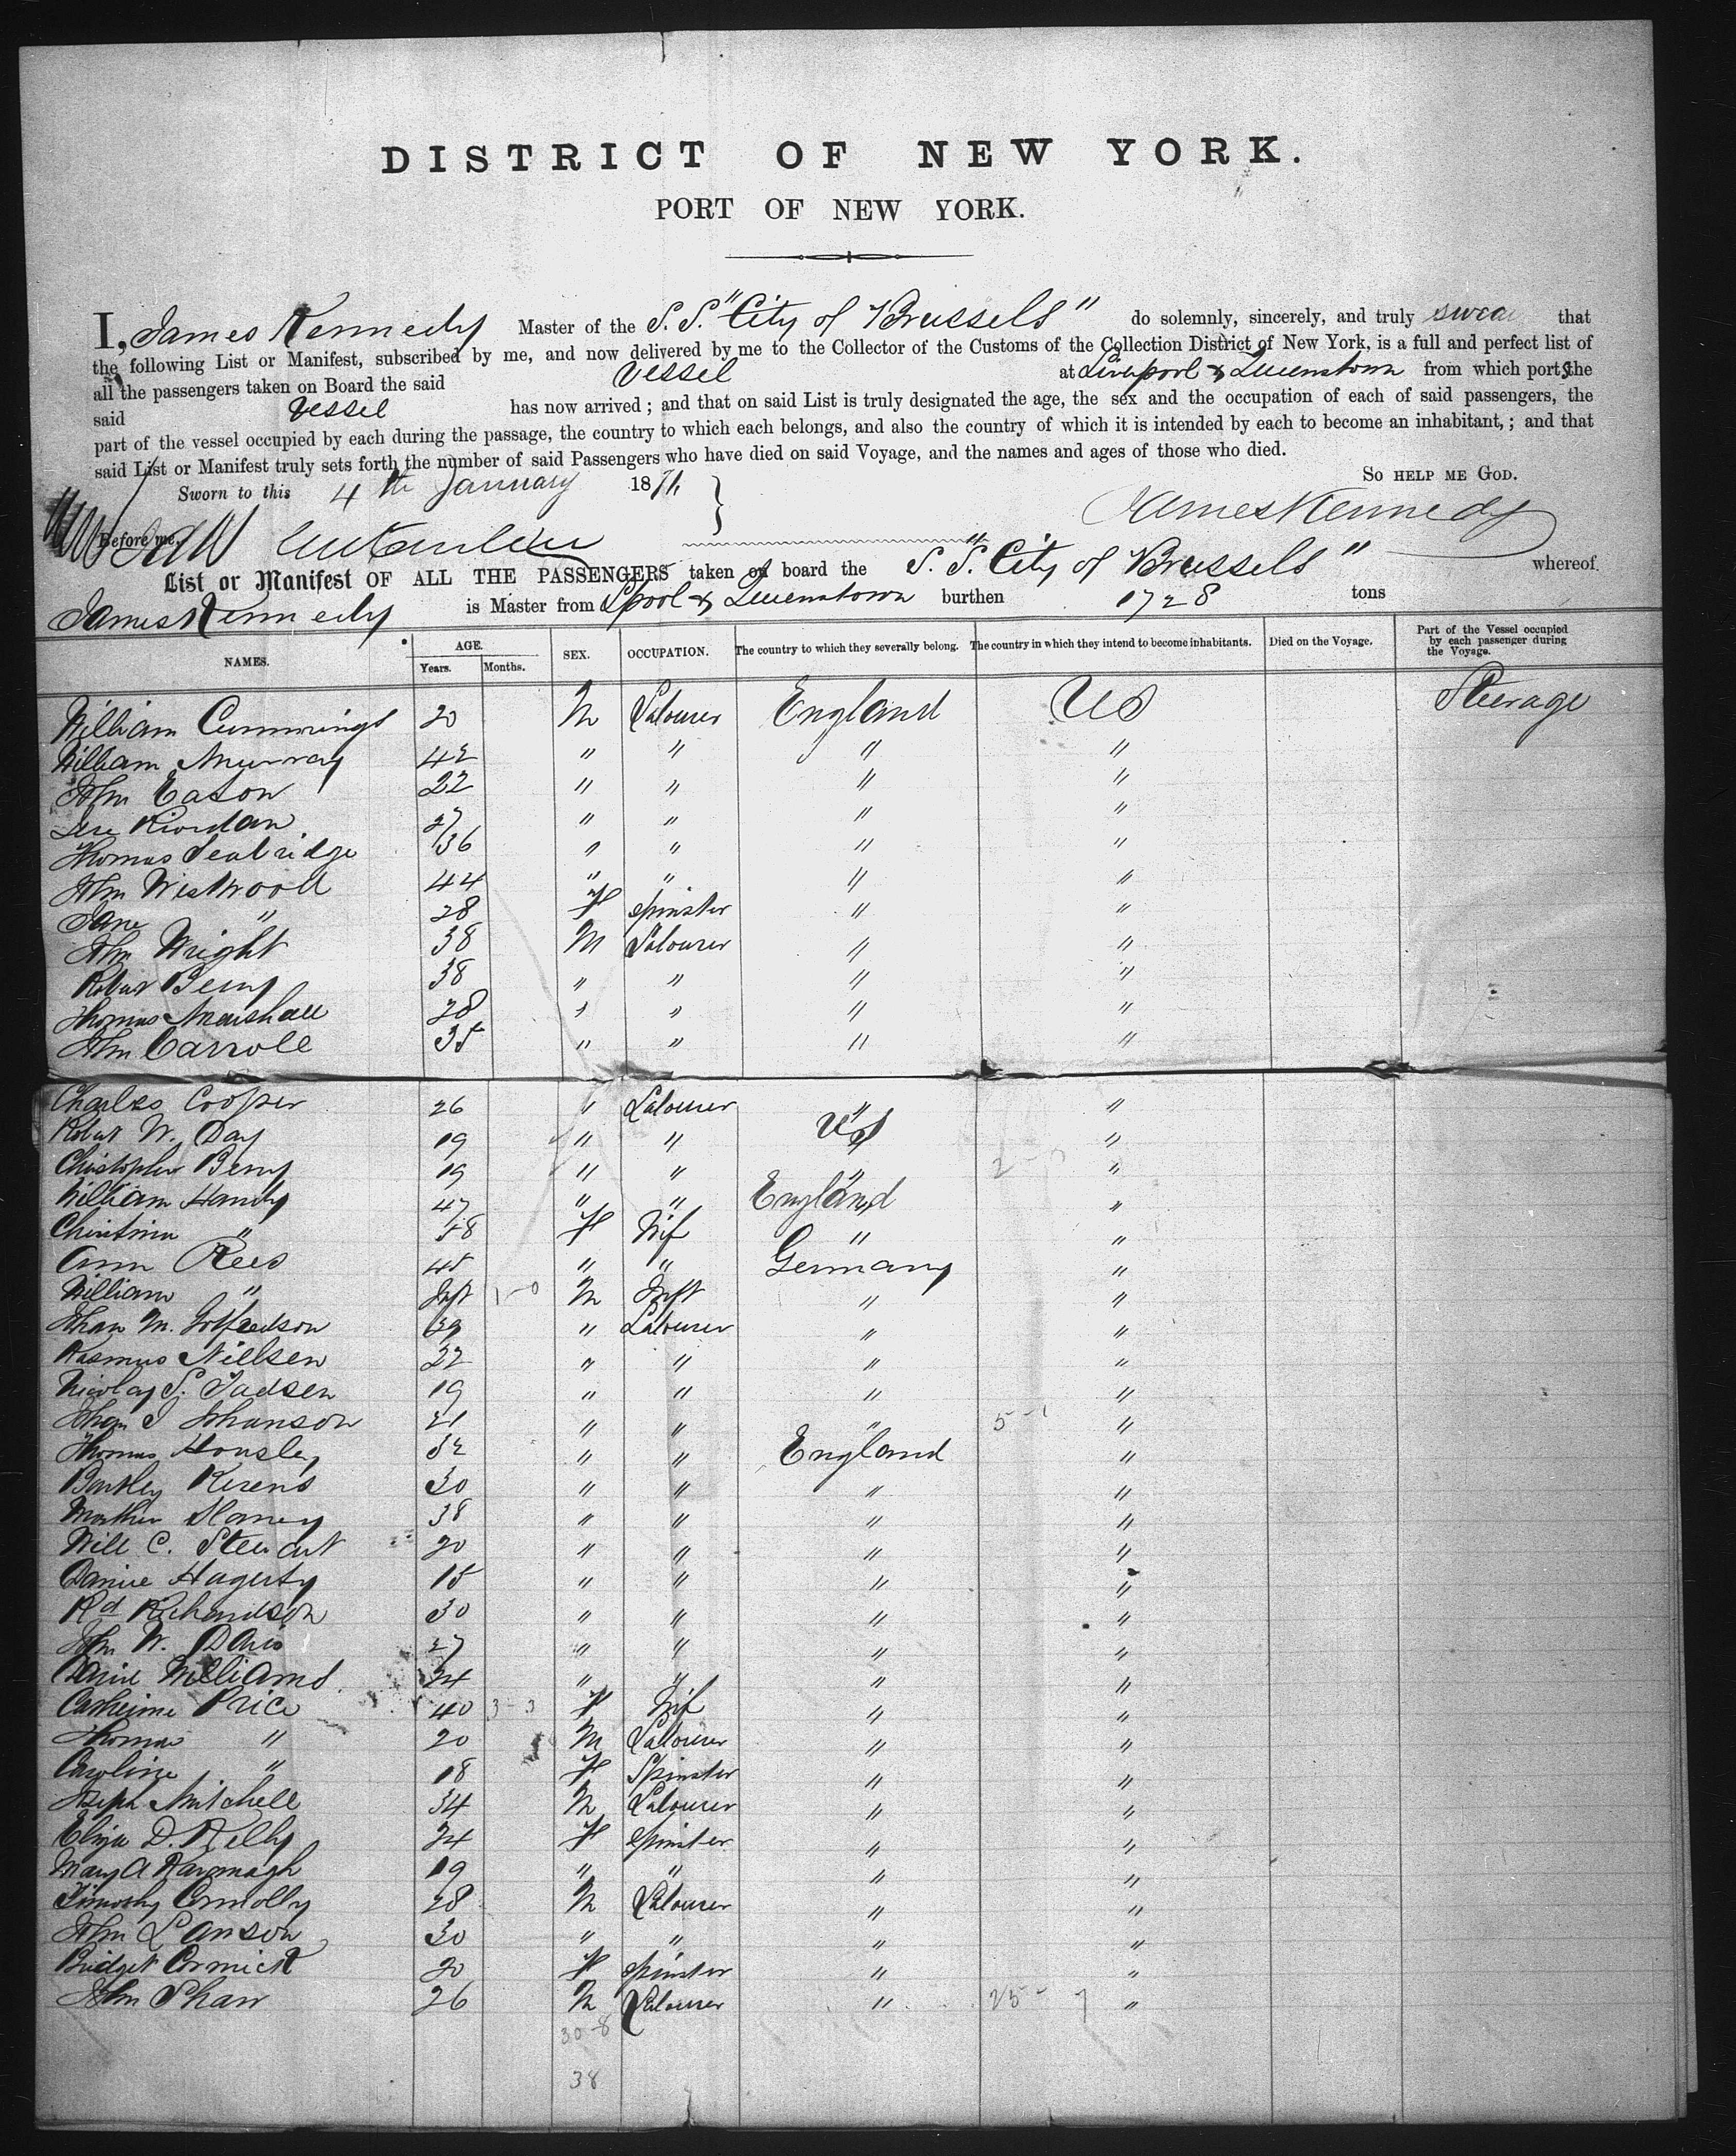 DISTRICT OF NEW YORK.
PORT OF NEW YORK.
I, James Kennedy Master of the S.S. "City of Brussels" do solemnly, sincerely, and truly swear that
the following List or Manifest, subscribed by me, and now delivered by me to the Collector of the Customs of the Collection District of New York, is a full and perfect list of
all the passengers taken on Board the said Vessel at Liverpool & Queenstown from which ports the
said Vessel has now arrived ; and that on said List is truly designated the age, the sex and the occupation of each of said passengers, the
part of the vessel occupied by each during the passage, the country to which each belongs, and also the country of which it is intended by each to become an inhabitant, ; and that
said List or Manifest truly sets forth the number of said Passengers who have died on said Voyage, and the names and ages of those who died.
SO HELP ME GOD.
Sworn to this 4th January 1871
James Kennedy
Before me,
List or Manifest OF ALL THE PASSENGERS taken on board the S.S. "City of Brussels" whereof
James Kennedy is Master from Lpool & Queenstown burthen 1728 tons
NAMES. AGE. Years. Months. SEX. OCCUPATION. The country to which they severally belong. The country in which they intend to become inhabitants. Died on the Voyage. Part of the Vessel occupied by each passenger during the Voyage.
William Cummings 20 M Labourer England US Steerage
William Murray 42 " " " "
John Eason 22 " " " "
Jere Riordan 27 " " " "
Thomas Seabridge 36 " " " "
John Westwood 44 " " " "
Jane " 28 F Spinster " "
John Wright 38 M Labourer " "
Robert Berry 38 " " " "
Thomas Marshall 28 " " " "
John Carroll 35 " " " "
Charles Cooper 26 " Labourer " "
Robert W. Day 19 " " US "
Christopher Berry 19 " " " "
William Handy 47 " " England "
Christina " 58 F Wife " "
Ann Rees 45 " " Germany "
William " Inft 1-0 M Inft " "
Johan M. 39 " Labourer " "
Rasmus Nielsen 22 " " " "
Nicolay S. Tadsen 19 " " " "
Johan J Johanson 21 " " " 5-1 "
Thomas Housley 32 " " England "
Bartley Kerens 30 " " " "
Slaney 38 " " " "
Will C. Stewart 20 " " " "
Daniel Hagerty 15 " " " "
Rd Richardson 30 " " " "
John W. Davis 27 " " " "
David Williams 24 " " " "
Catherine Price 40 3-3 F Wife " "
Thomas " 20 M Labourer " "
Caroline " 18 F Spinster " "
Joseph Mitchell 34 M Labourer " "
Eliza D. Kelly 24 F Spinster " "
Mary A Kavanagh 19 " " " "
Timothy Connolly 28 M Labourer " "
John Lanson 30 " " " "
Bridget Cormick 20 F Spinster " "
John Shaw 26 M Labourer " 25-7 "
30-8
38